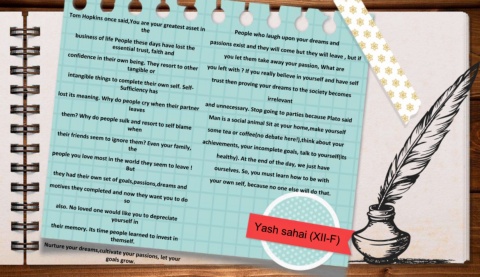 Tom Hopkins once said,You are your greatest asset in
the
business of life People these days have lost the
essential trust, faith and
confidence in their own being. They resort to other
tangible or
intangible things to complete their own self. Self-
Sufficiency has
lost its meaning. Why do people cry when their partner
leaves
them? Why do people sulk and resort to self blame
when
their friends seem to ignore them? Even your family,
the
people you love most in the world they seem to leave !
But
they had their own set of goals,passions,dreams and
motives they completed and now they want you to do
so
also. No loved one would like you to depreciate
yourself in
their memory. its time people learned to invest in
themself.
Nurture your dreams,cultivate your passions, let your
goals grow.
People who laugh upon your dreams and
passions exist and they will come but they will leave , but if
you let them take away your passion, What are
you left with ? If you really believe in yourself and have self
trust then proving your dreams to the society becomes
irrelevant
and unnecessary. Stop going to parties because Plato said
Man is a social animal Sit at your home,make yourself
some tea or coffee(no debate here!),think about your
achievements, your incomplete goals, talk to yourself(its
healthy). At the end of the day, we just have
ourselves. So, you must learn how to be with
your own self, because no one else will do that.
Yash sahai (XII-F)